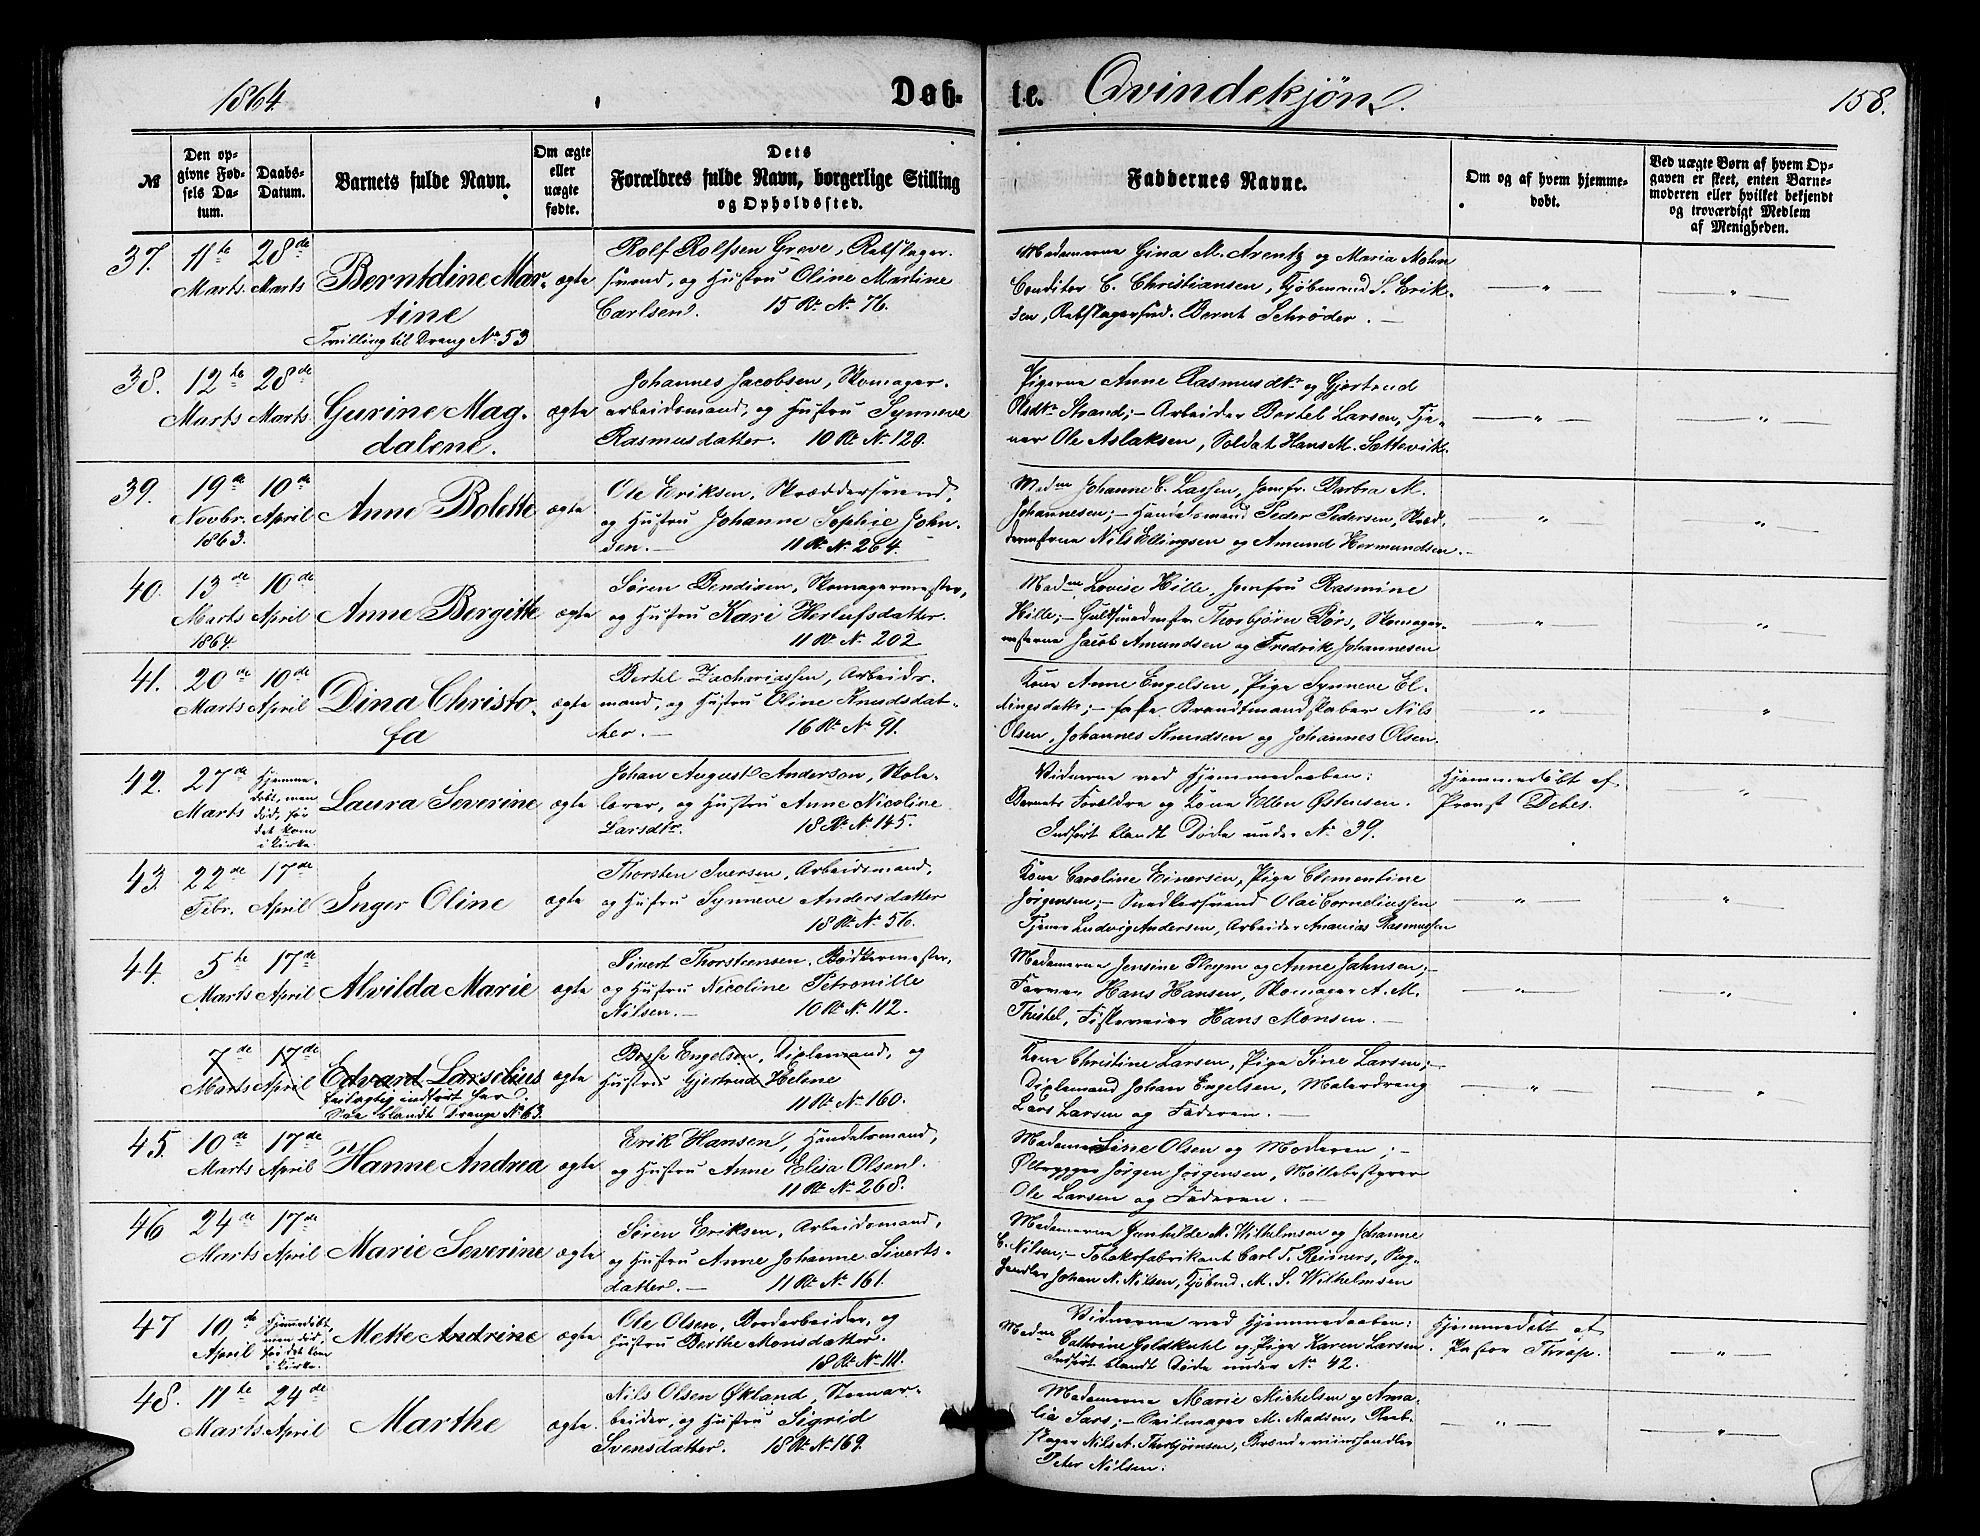 1864.
Døb-
te. Qvindekjøn.
158.
№
Den op-
givne Fød-
sels Da-
tum.
Daabs-
Datum.
Barnets fulde Navn.
Om ægte
eller
uægte
fødte.
Dets
Forældres fulde Navn, borgerlige Stilling
og Opholdssted.
Faddernes Navne.
Om og af hvem hjemme-
døbt.
Ved uægte Børn af hvem Op-
gaven er skeet, enten Barne-
moderen eller hvilket bekjendt
og troværdigt Medlem
af Menigheden.
37. 11te Marts. 28de Marts
Berntdine Mar-
tine
Tvilling til Dreng No 53
ægte
Rolf Rolfsen Greve, Rebslager-
svend, og Hustru Oline Martine
Carlsen. 15 R. No. 76.
Madamerne Gina M. Arentz og Maria Mohn
Conditor C. Christiansen, Kjøbmand S. Erik-
sen, Rebslagersvd. Bernt Schrøder. —
38. 12te Marts 28de Marts.
Gurine Mag-
dalene.
ægte
Johannes Jacobsen, Skomager-
arbeidsmand, og Hustru Synneve
Rasmusdatter. 10 R. No. 120.
Pigerne Anne Rasmusdtr og Gjertrud
Olsdtr Strand; — Arbeider Bertel Larsen, Tje-
ner Ole Aslaksen, Soldat Hans M. Sættevik.
39. 19de Novbr. 1863. 10de April
Anne Bolette
ægte
Ole Eriksen, Skræddersvend,
og Hustru Johanne Sophie John-
sen. — 11 R. No. 264.
Madme Johanne C. Lassen, Jomfr. Barbra M.
Johannesen; — Handelsmand Peder Pedersen, Skræd-
dersvene Nils Ellingsen og Amund Hermundsen. —
40. 13de Marts 1864. 10de April
Anne Bergitte
ægte
Søren Bendixen, Skomagermester,
og Hustru Kari Herlufsdatter.
11 R. No. 202
Madme Lovise Hille, Jomfru Rasmine
Hille; — Guldsmedmstr Thorbjørn Børs, Skomager-
mesterne Jacob Amundsen og Fredrik Johannesen
41. 20de Marts 10de April
Dina Christo-
fa
ægte
Bertel Zachariassen, Arbeids-
mand, og Hustru Oline Knudsdat-
ter. — 16 R. No 91.
Kone Anne Engelsen, Pige Synneve El-
lingsdatter; — Brandtmandskaber Nils
Olsen, Johannes Knudsen og Johannes Olsen.
42. 27de Marts
Hjemme-
døbt, men
død, før
det kom
i Kirke.
Laura Severine
ægte
Johan August Anderson, Skole-
lærer, og Hustru Anne Nicoline
Larsdtr. 18 R. No 145.
Vidnerne ved Hjemmedaaben:
Barnets Forældre og Kone Ellen Østensen.
Indført blandt Døde under No 39.
Hjemmedøbt af
Provst Debes.
43. 22de Febr. 17de April
Inger Oline
ægte
Thorsten Iversen, Arbeidsmand,
og Hustru Synneve Andersdatter
18 R. No. 56.
Kone Caroline Einersen, Pige Clementine
Jørgensen; — Snedkersvend Olai Corneliussen
Tjener Ludvig Andersen, Arbeider Ananias Rasmussen
44. 5te Marts 17de April
Alvilda Marie
ægte
Sivert Thorstensen, Bødkermester,
og Hustru Nicoline Petronille
Nilsen. — 10 R. No. 112.
Madamerne Jensine Pleym og Anne Jahnsen; —
Farver Hans Hansen, Skomager A. M.
Thistel, Fiskerveier Hans Monsen. —
7de Marts 17de April
Edvard Larselius
feilagtig indført her.
Staa blandt Drenge No 63.
ægte
Engelsen, Diplemand, og
Hustru Gjertrud Helene
11 R. No 160.
Kone Christine Larsen, Pige Sine Larsen; —
Diplemand Johan Engelsen, Malerdreng
Lars Larsen og Faderen. —
45. 10de Marts 17de April
Hanne Andrea
ægte
Erik Hansen, Handelsmand,
og Hustru Anne Elisa Olsen.
11 R. No 268.
Madame Sine Olsen og Moderen; —
Ølbrygger Jørgen Jørgensen, Møllebestyrer
Ole Larsen og Faderen. —
46 24de Marts 17de April
Marie Severine
ægte
Søren Eriksen, Arbeidsmand,
og Hustru Anne Johanne Siverts-
datter. — 11 R. No. 161.
Madamerne Gunhilde M. Wilhelmsen og Johanne
C. Nilsen; — Tobaksfabrikant Carl T. Reimers, Bog-
handler Johan N. Nilsen, Kjøbmd. M. S. Wilhelmsen
47 10de April
Hjemmedøbt,
men død,
før det kom
i Kirke.
Mette Andrine
ægte
Ole Olsen, Jordarbeider, og
Hustru Berthe Monsdatter.
18 R. No. 111.
Vidnerne ved Hjemmedaaben:
Madme Cathrine Goldkuhl og Pige Karen Larsen.
Indført blandt Døde under No 42.
Hjemmedøbt af
Pastor Thrap.
48. 17te Marts. 24de April
Marthe
ægte.
Nils Olsen Økland, Steenar-
beider, og Hustru Sigrid
Svensdatter. 18 R. No. 169.
Madamerne Marie Michelsen og Ama-
lia Sars; — Seilmager M. Madsen, Reb-
slager Nils A. Thorbjørnsen, Brændeviinshandler
Peter Nilsen.